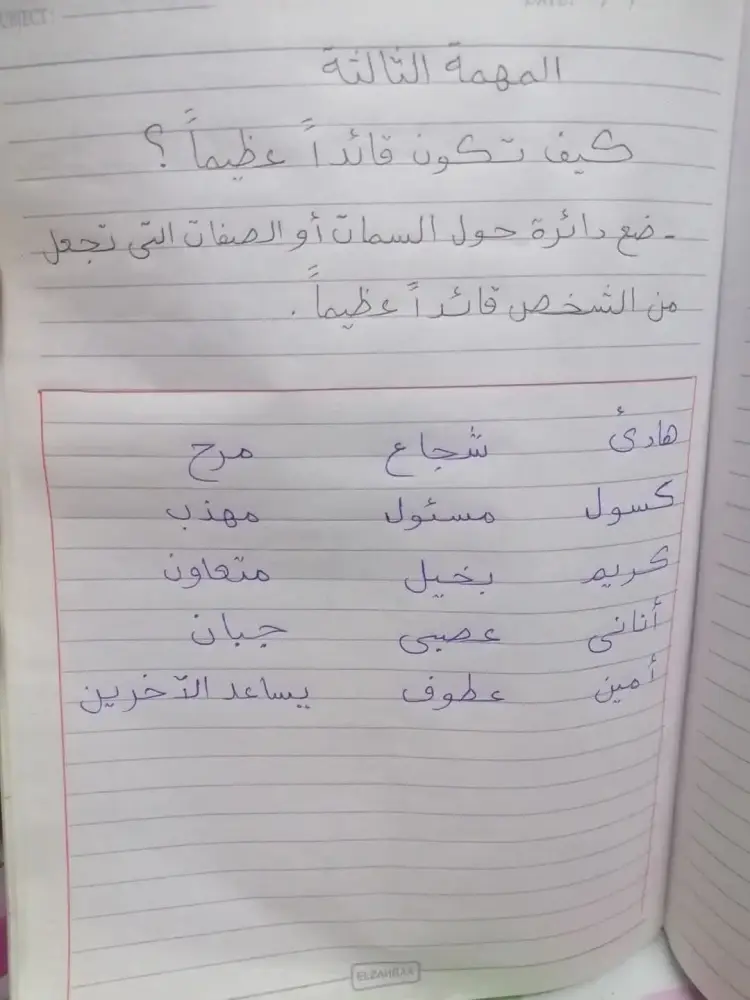 المهمة الثالثة
كيف تكون قائداً عظيماً ؟
- ضع دائرة حول السمات أو الصفات التى تجعل
من الشخص قائداً عظيماً .
هادئ شجاع مرح
كسول مسئول مهذب
كريم بخيل متعاون
أنانى عصبى جبان
أمين عطوف يساعد الآخرين
ELZAHRAA